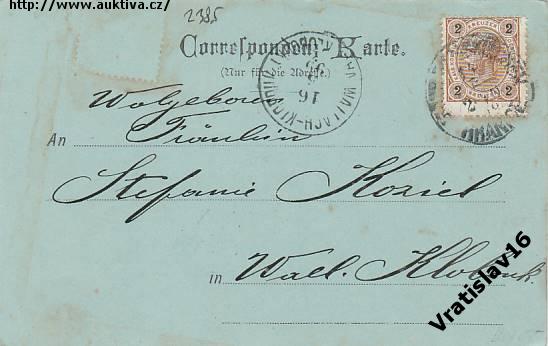 http://www.auktiva.cz/
2385
Correspondenz-Karte.
(Nur für die Adresse.)
2 KREUZER 2
2 2
WALLACH-KLOBOUK
16
Wolgeboren
An Fräulein
Stefanie Koziel
in Wall. Klobouk.
Vratislav16